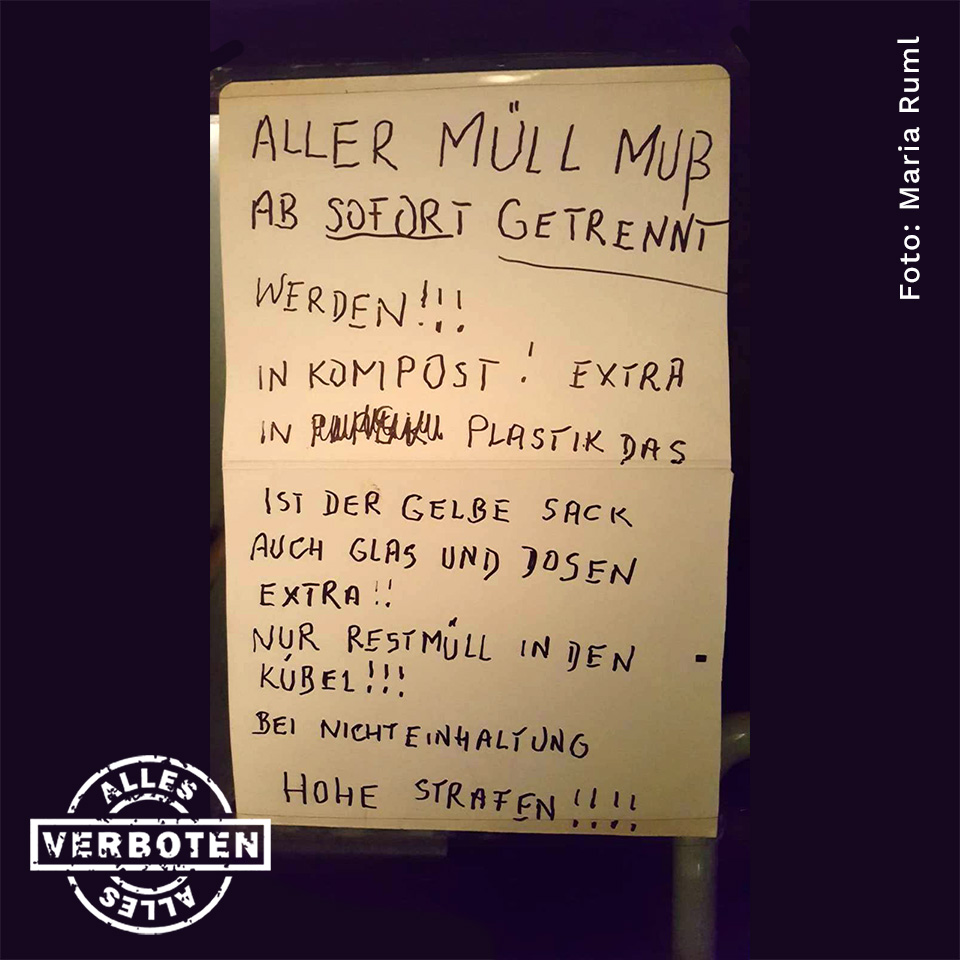 ALLER MÜLL MUß
AB SOFORT GETRENNT
WERDEN!!!
IN KOMPOST! EXTRA
IN PLASTIK DAS
IST DER GELBE SACK
AUCH GLAS UND DOSEN
EXTRA!!
NUR RESTMÜLL IN DEN
KÜBEL!!!
BEI NICHTEINHALTUNG
HOHE STRAFEN!!!!
Foto: Maria Ruml
ALLES
VERBOTEN
ALLES